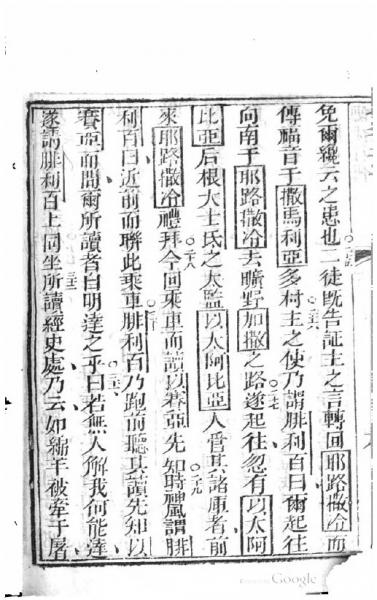 免爾纔云之患也二徒旣告証主之言轉回耶路撒冷而
傳福音于撒馬利亞多村主之使乃謂腓利百曰爾起往
向南于耶路撒冷去曠野加撒之路遂起往忽有以太阿
比亞后根大士氏之太監以太阿比亞人管其諸庫者前
來耶路撒冷禮拜今回乘車而讀以賽亞先知時神風謂腓
利百曰近前而聯此乘車腓利百乃跑前聽其讀先知以
賽亞而問爾所讀者自明達之乎曰若無人解我何能達
遂請腓利百上同坐所讀經史處乃云如綿羊被牽于屠
Google